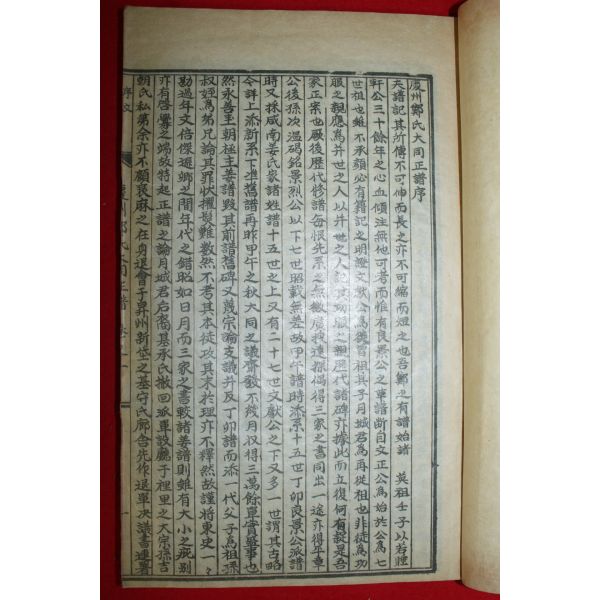 慶州鄭氏大同正譜序
夫譜記其所傳不可伸而長之亦不可縮而短之也吾鄭之有譜始諸 英祖壬子以若軆
軒公三十餘年之心血傾注無他可考而惟有良景公之單譜斷自文正公爲始於公爲七
世祖也雖不承顔必有籍記之明證文獻公爲從曾祖其子月城君爲再從祖也非徒爲功
服之親應爲幷世之人以幷世之人記其功服之親歷代譜碑亦據此而立復何有疑是吾
家正宗也厥後歷代修譜每恨先系之無徵廣搜遠據偶得三家之書同出一途亦得平章
公後孫次溫碣銘景烈公以下七世昭載無差故甲午譜時添系十五世丁卯良景公派譜
時又採咸南姜氏家諸姓譜十五世之上又有二十七世文獻公之下又多一世謂其古略
今詳上添新系下準舊譜再昨甲午之秋大同之議齊發不幾月收得三萬餘單實盛事也
然永善王朝極主姜譜毁其前譜舊碑又幾宗論支議幷反丁卯譜而添一代父子爲祖孫
叔姪爲弟兄論其罪狀擢髮難數然不考其本徒攻其末於理亦不釋然故謹將東史一々
勘過年文倍傑遯鄉之間年代之錯昭如日月而三家之書較諸姜譜則雖有大小之疵別
亦有啓釁之端故特起正譜之論月城君后裔基承氏撤回派單設廳于裡里之大宗孫吉
朝氏私第余亦不顧衰麻之在身退會于昇州新垈之基守氏廊舍先作退單決議書連署
序文
慶州鄭氏大同正譜 卷之一
一